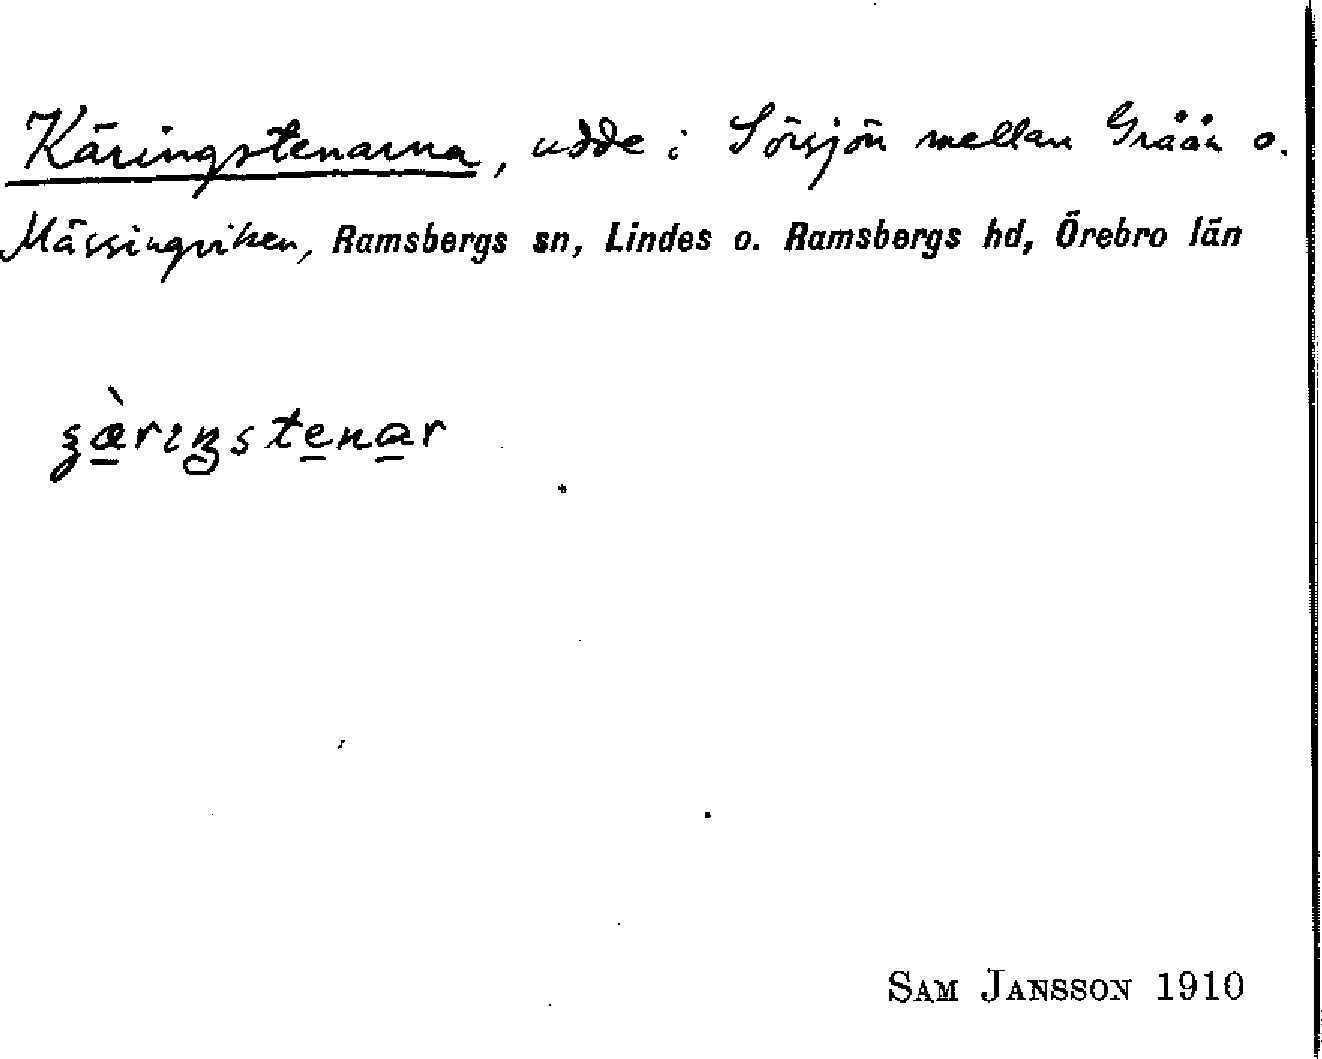 Käringstenarna, udde i Sörsjön mellan Gråån o.
Mässingviken, Ramsbergs sn, Lindes o. Ramsbergs hd, Örebro län
SAM JANSSON 1910